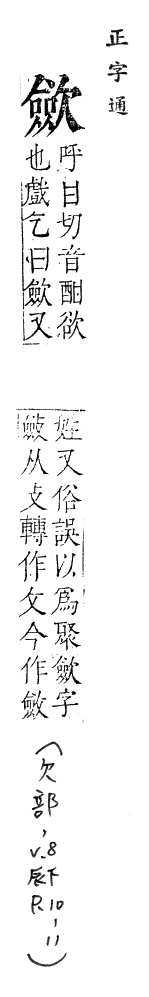 正字通
歛
呼甘切音酣欲
也戲乞曰歛又
姓又俗誤以爲聚歛字
斂从攴轉作攵今作斂
(欠部,v.8
辰下
P.10-11)